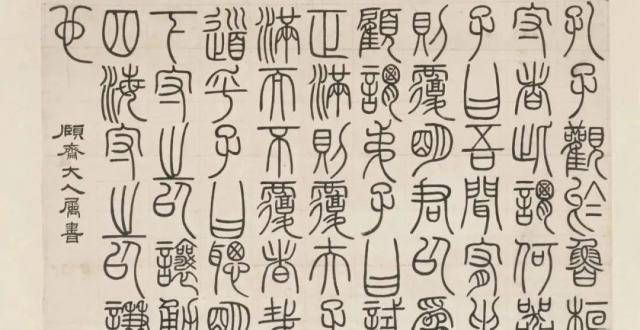 孔子觀於魯桓
守者此謂何器
子曰吾聞宥坐
則覆明君以為
顧謂弟子曰試
正滿則覆夫子
滿而不覆者哉
道乎子曰聰明
下守之以讓勇
四海守之以謙
也
頤齋大人屬書